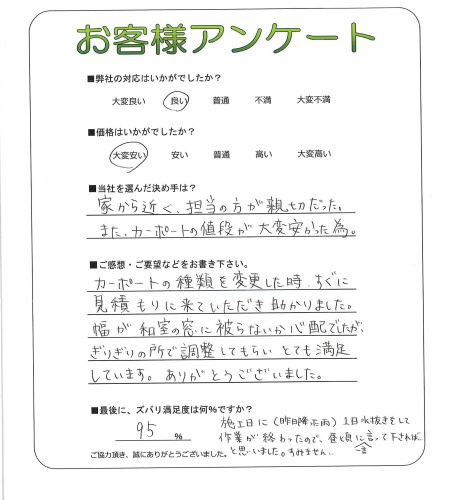 お客様アンケート
■弊社の対応はいかがでしたか?
大変良い 良い 普通 不満 大変不満
■価格はいかがでしたか?
大変安い 安い 普通 高い 大変高い
■当社を選んだ決め手は?
家から近く、担当の方が親切だった。
また、カーポートの値段が大変安かった為。
■ご感想・ご要望などをお書き下さい。
カーポートの種類を変更した時、すぐに
見積もりに来ていただき助かりました。
幅が和室の窓に被らないか心配でしたが、
ぎりぎりの所で調整してもらいとても満足
しています。ありがとうございました。
■最後に、ズバリ満足度は何%ですか?
95 %
施工日に(昨日降った雨)1日水抜きをして
作業が終わったので、昼頃に言って下されば
と思いました。すみません…
ご協力頂き、誠にありがとうございました。